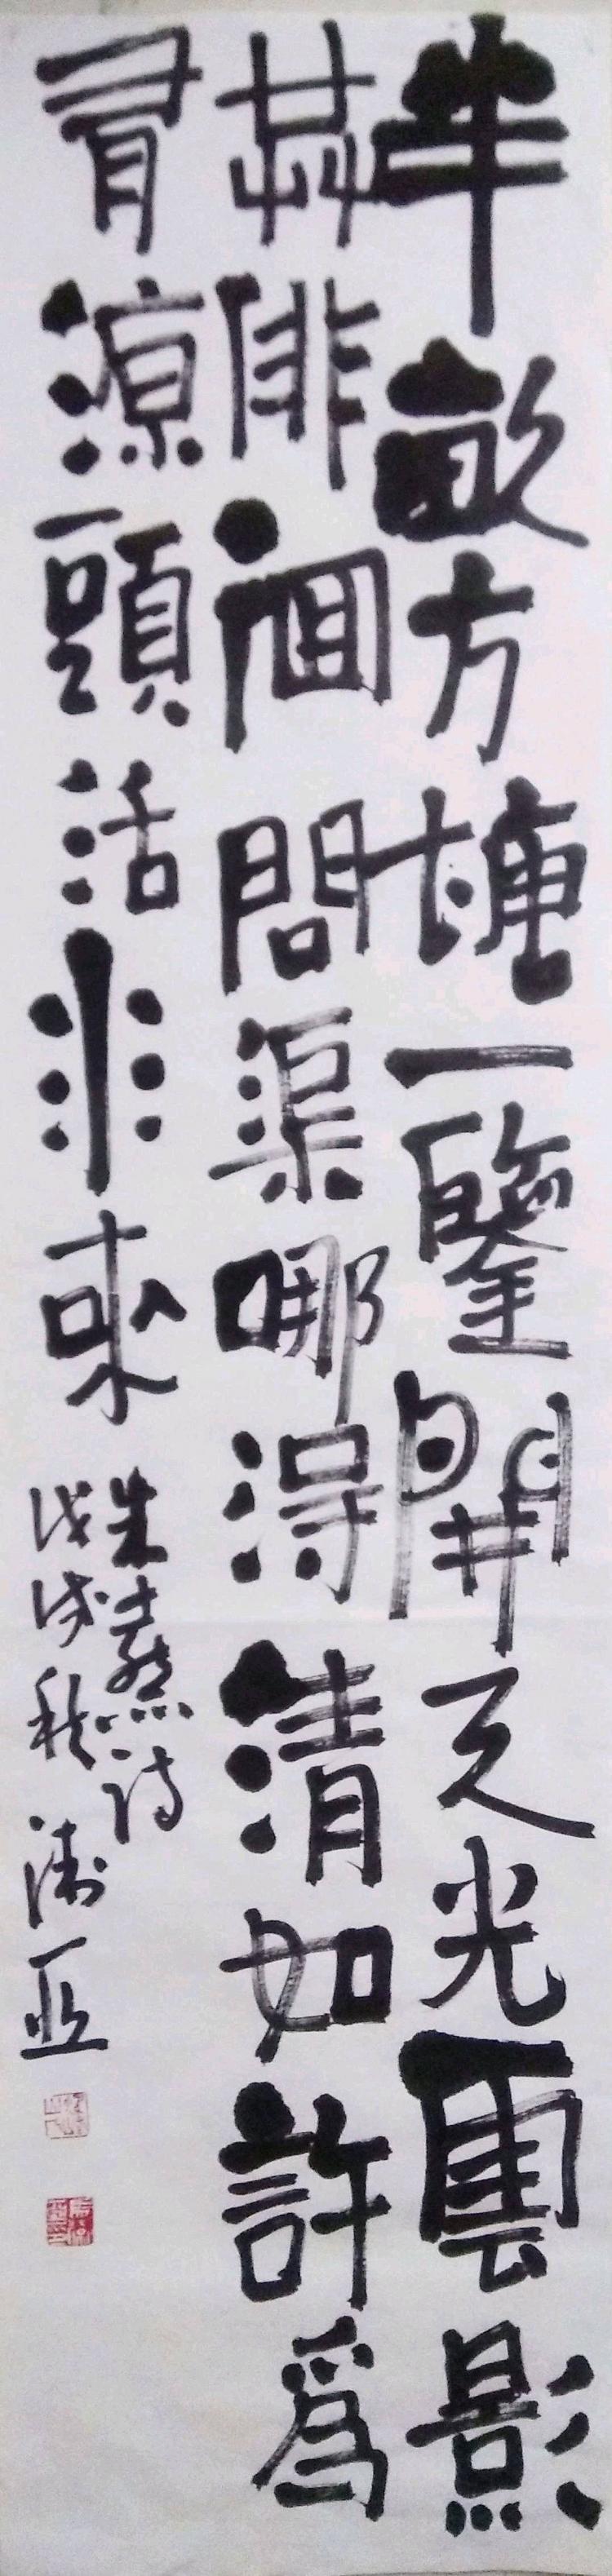 半畝方塘一鑒開天光雲影
共徘徊問渠哪得清如許為
有源頭活水來
朱熹詩
戊戌秋 濤亚